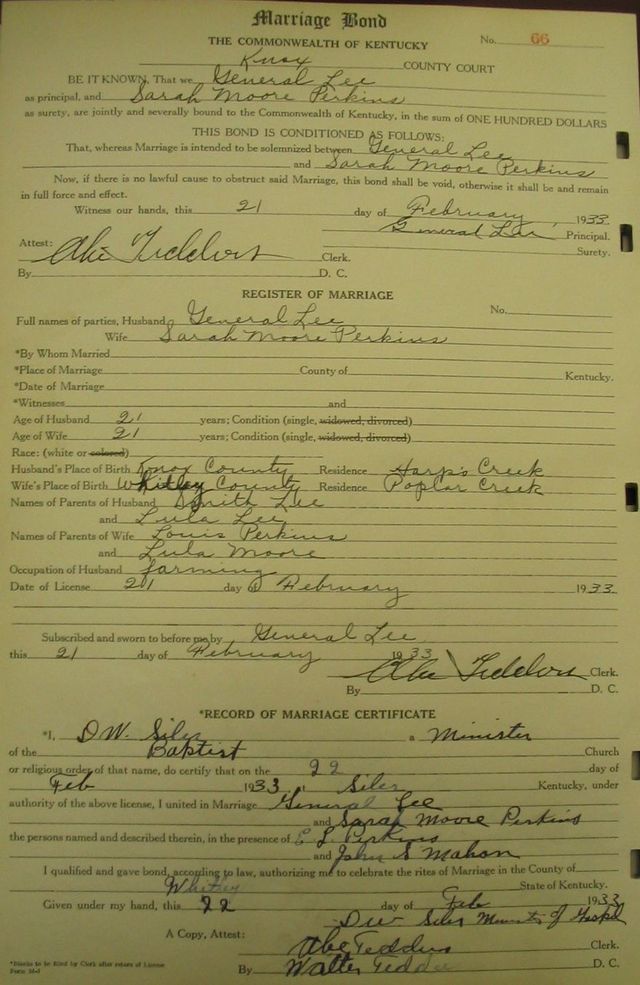 Marriage Bond
THE COMMONWEALTH OF KENTUCKY No. 66
Knox COUNTY COURT
BE IT KNOWN, That we General Lee
as principal, and Sarah Moore Perkins
as surety, are jointly and severally bound to the Commonwealth of Kentucky, in the sum of ONE HUNDRED DOLLARS
THIS BOND IS CONDITIONED AS FOLLOWS:
That, whereas Marriage is intended to be solemnized between General Lee
and Sarah Moore Perkins
Now, if there is no lawful cause to obstruct said Marriage, this bond shall be void, otherwise it shall be and remain
in full force and effect.
Witness our hands, this 21 day of February, 1933
General Lee Principal.
Attest: Surety.
Abe Tedders Clerk.
By D. C.
REGISTER OF MARRIAGE
No.
Full names of parties, Husband General Lee
Wife Sarah Moore Perkins
*By Whom Married
*Place of Marriage County of Kentucky.
*Date of Marriage
*Witnesses and
Age of Husband 21 years; Condition (single, widowed, divorced)
Age of Wife 21 years; Condition (single, widowed, divorced)
Race: (white or colored)
Husband's Place of Birth Knox County Residence Harp's Creek
Wife's Place of Birth Whitley County Residence Poplar Creek
Names of Parents of Husband Smith Lee
and Lula Lee
Names of Parents of Wife Louis Perkins
and Lula Moore
Occupation of Husband farming
Date of License 21 day of February 1933
Subscribed and sworn to before me by General Lee
this 21 day of February 1933
Abe Tedders Clerk.
By D. C.
*RECORD OF MARRIAGE CERTIFICATE
*I, D.W. Siler a Minister
of the Baptist Church
or religious order of that name, do certify that on the 22 day of
Feb 1933, Siler Kentucky, under
authority of the above license, I united in Marriage General Lee
and Sarah Moore Perkins
the persons named and described therein, in the presence of E L Perkins
and John S Mahon
I qualified and gave bond, according to law, authorizing me to celebrate the rites of Marriage in the County of
Whitley State of Kentucky.
Given under my hand, this 22 day of Feb 1933
DW Siler Minister of Gospel
A Copy, Attest: Abe Tedders Clerk.
*Blanks to be filled by Clerk after return of License
By Walter Tedders D. C.